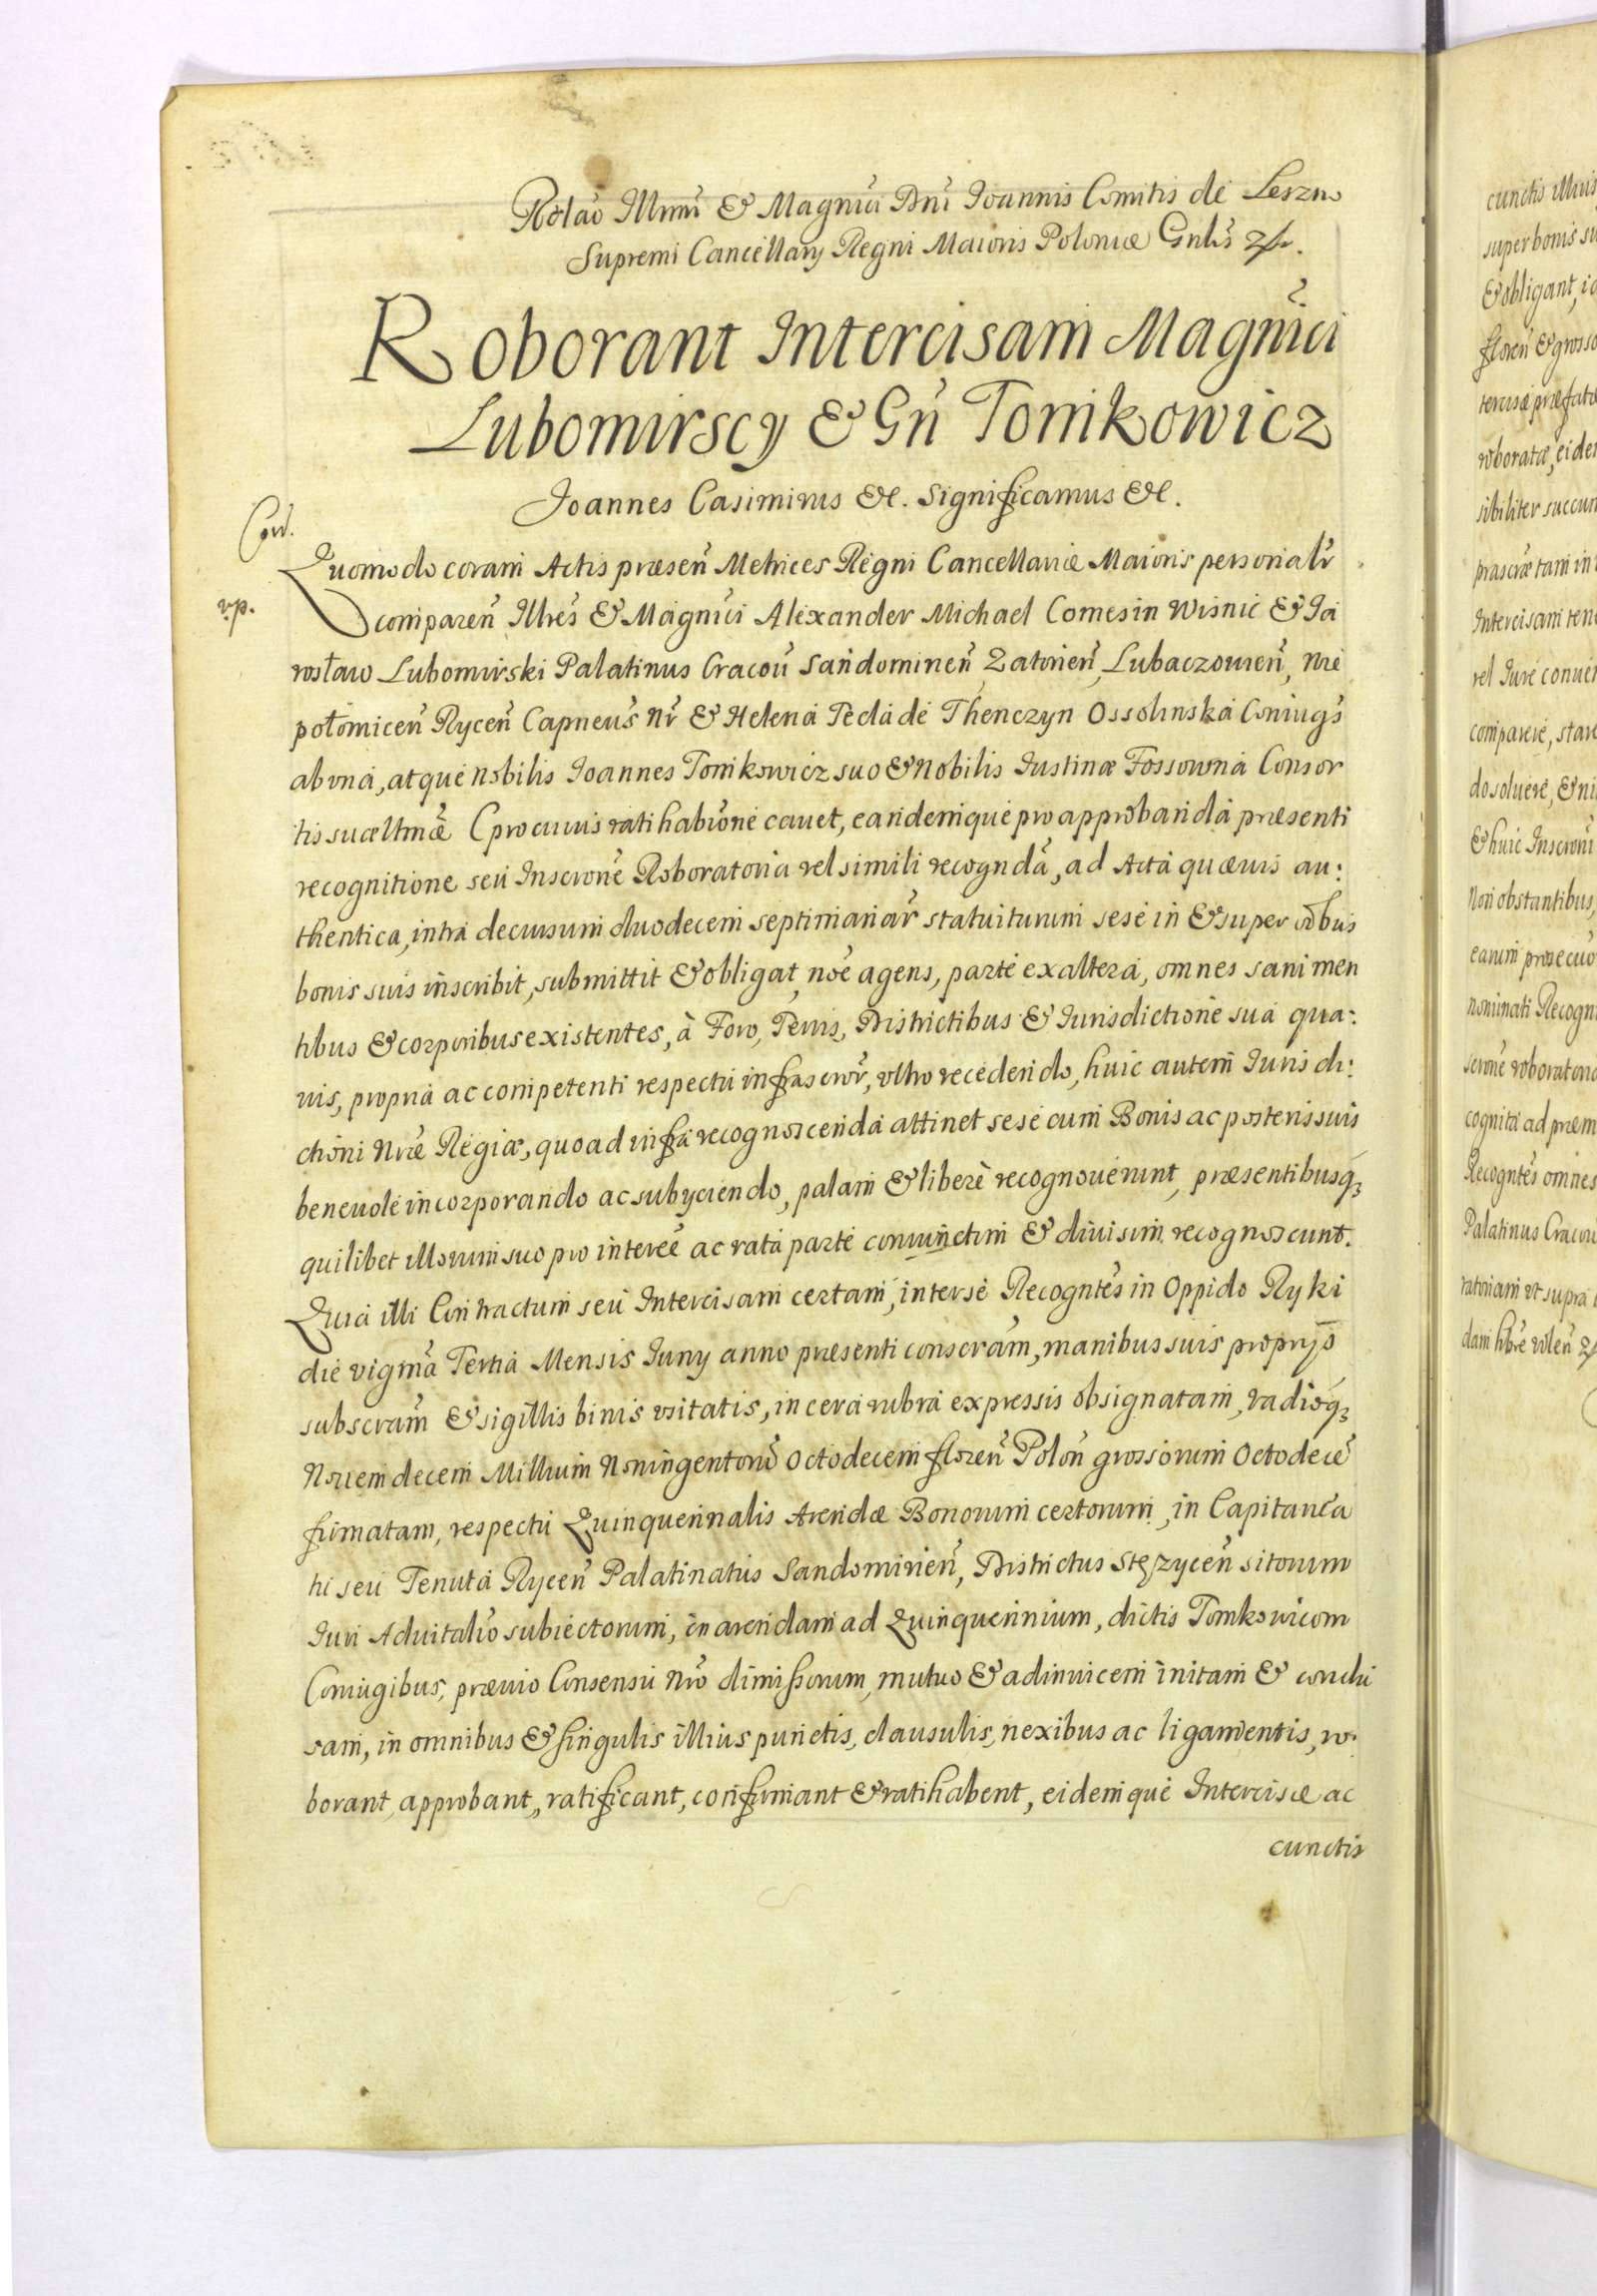 Rõlao Illmi & Magnici Dni Joannis Comitis de Leszno
Supremi Cancellary Regni Maioris Poloniæ Gnlis
Roborant Intercisam Magnici
Lubomirscy & Gn Tomkowicz
Joannes Casimirus &c. Significamus &c.
Quomodo coram Actis præsen Metrices Regni Cancellariæ Maioris personalr
vp. comparen Illres & Magnici Alexander Michael Comes in Wisnic & Ja
rosław Lubomirski Palatinus Cracou Sandominen, Zatorien, Lubaczouien, Nie
połomicen Rycen Capneus nr & Helena Tecla de Thenczyn Ossolinska Coniugs
ab una, atque nobilis Joannes Tomkowicz suo & Nobilis Justinæ Fossowna Consor
tis suæ ltmæ (pro cuius ratihabione cauet, eandemque pro approbanda præsenti
recognitione seu Inscrone Roboratoria vel simili recognda, ad Acta quævis au:
thentica, intra decursum duodecem septimanar statuiturum sese in & super oibus
bonis suis inscribit, submittit & obligat, noe agens, parte ex altera, omnes sani men
tibus & corporibus existentes, à Foro, Terris, Districtibus & Jurisdictione sua qua:
vis, propria ac competenti respectu infrascror, vltro recedendo, huic autem Juris di:
ctioni Nræ Regiæ, quo ad infra recognoscenda attinet sese cum Bonis ac posteris suis
beneuole incorporando ac subyciendo, palam & liberè recognouerunt, præsentibusq3
quilibet illorum suo pro interee ac rata parte coniunctim & diuisim recognoscunt.
Quia illi Contractum seu Intercisam certam, inter se Recogntes in Oppido Ryki
die vigma Tertia Mensis Juny anno præsenti conscram, manibus suis proprijs
subscram & sigillis binis vsitatis, in cera rubra expressis obsignatam, vadioq3
Nouemdecem Millium Noningentoru Octodecem floren Polon grossorum Octodece
firmatam, respectu Quinquennalis Arendæ Bonorum certorum, in Capitanea
tu seu Tenuta Rycen Palatinatus Sandomirien, Districtus Stężycen sitorum
Juri Aduitalio subiectorum, in arendam ad Quinquennium, dictis Tomkowicom
Coniugibus, præuio Consensu Nro dimissorum, mutuo & adinuicem initam & conclu
sam, in omnibus & singulis illius punctis, clausulis, nexibus ac ligamentis, ro.
borant, approbant, ratificant, confirmant & ratihabent, eidemque Intercisæ ac
cunctis